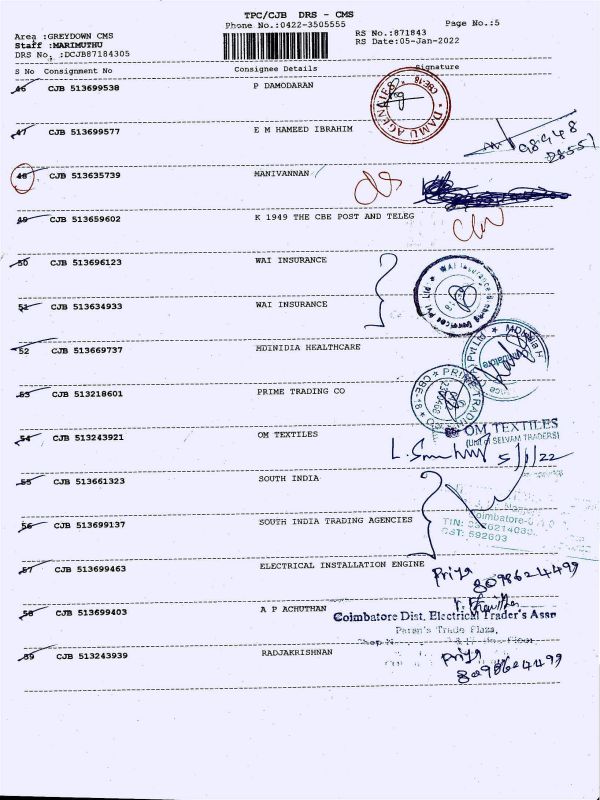 TPC/CJB DRS - CMS
Phone No.:0422-3505555
Page No.:5
Area :GREYDOWN CMS
RS No.:871843
Staff :MARIMUTHU
RS Date:05-Jan-2022
DRS No. :DCJB87184305
S No Consignment No Consignee Details Signature
46 CJB 513699538 P DAMODARAN
DAMU AGENCIES CBE-18
47 CJB 513699577 E M HAMEED IBRAHIM
98948
28551
48 CJB 513635739 MANIVANNAN
49 CJB 513659602 K 1949 THE CBE POST AND TELEG
50 CJB 513696123 WAI INSURANCE
51 CJB 513634933 WAI INSURANCE
52 CJB 513669737 MDINIDIA HEALTHCARE
53 CJB 513218601 PRIME TRADING CO
PRIME TRADING CO CBE-8
54 CJB 513243921 OM TEXTILES
OM TEXTILES
(Unit of SELVAM TRADERS)
5/1/22
55 CJB 513661323 SOUTH INDIA
56 CJB 513699137 SOUTH INDIA TRADING AGENCIES
Coimbatore
TIN:
CST: 592603
57 CJB 513699463 ELECTRICAL INSTALLATION ENGINE
Priya
8098624499
58 CJB 513699403 A P ACHUTHAN
Coimbatore Dist. Electrical Trader's Assn
Trade Plaza,
59 CJB 513243939 RADJAKRISHNAN
Priya
8098624499